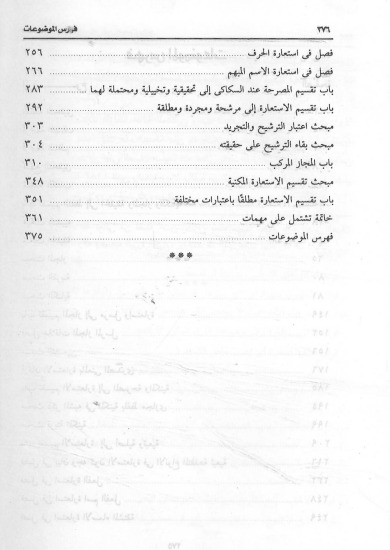 ٣٧٦ فهارس الموضوعات
فصل فى استعارة الحرف ٢٥٦
فصل فى استعارة الاسم المبهم ٢٦٦
باب تقسيم المصرحة عند السكاكى إلى تحقيقية وتخييلية ومحتملة لهما ٢٨٣
باب تقسيم الاستعارة إلى مرشحة ومجردة ومطلقة ٢٩٢
مبحث اعتبار الترشيح والتجريد ٣٠٣
مبحث بقاء الترشيح على حقيقته ٣٠٤
باب المجاز المركب ٣١٠
مبحث تقسيم الاستعارة المكنية ٣٤٨
باب تقسيم الاستعارة مطلقًا باعتبارات مختلفة ٣٥١
خاتمة تشتمل على مهمات ٣٦١
فهرس الموضوعات ٣٧٥
***